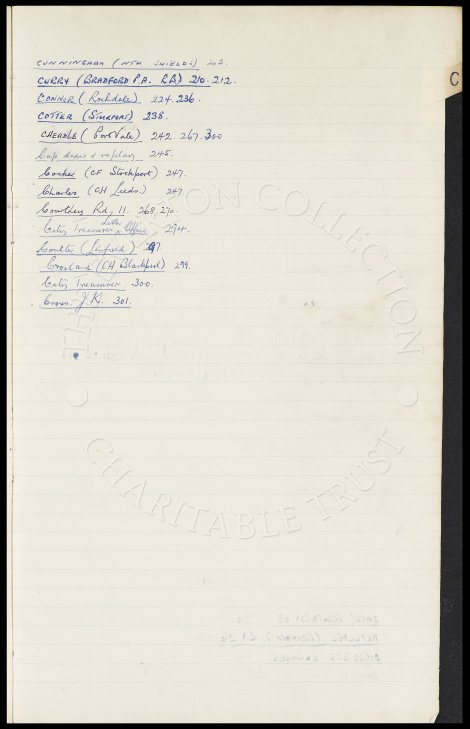 C
CUNNINGHAM (NTH. SHIELDS) 203.
CURRY (BRADFORD P.A. RB) 210. 212.
CONNOR (Rochdale) 224. 236.
COTTER (STOCKPORT) 238.
CHEADLE (Port Vale) 242 267. 300
Cup draw & replay 245.
Cocker (CF Stockport) 247.
Charles (CH Leeds.) 247.
Courtney Rd, 11. 268. 270.
City Treasurer's Letter Office 294.
Coulter (Linfield) 297
Crosland (CH Blackpool) 299.
City Treasurer 300.
Cross J.K. 301.
THE COLLECTION
CHARITABLE TRUST